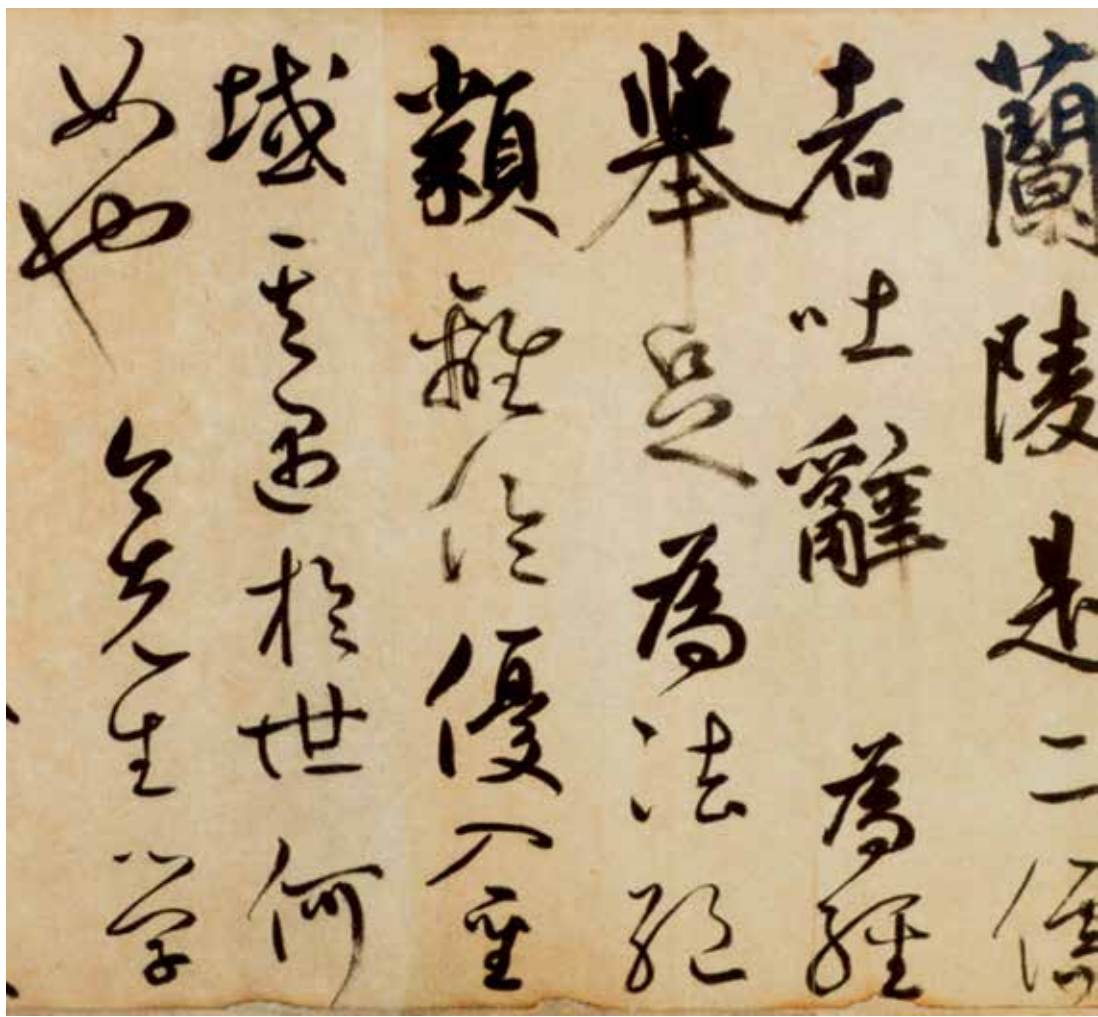 蘭陵是二儒
者吐辭為經
舉足為法絕
類離倫優入聖
域其遇於世何
如也今先生学